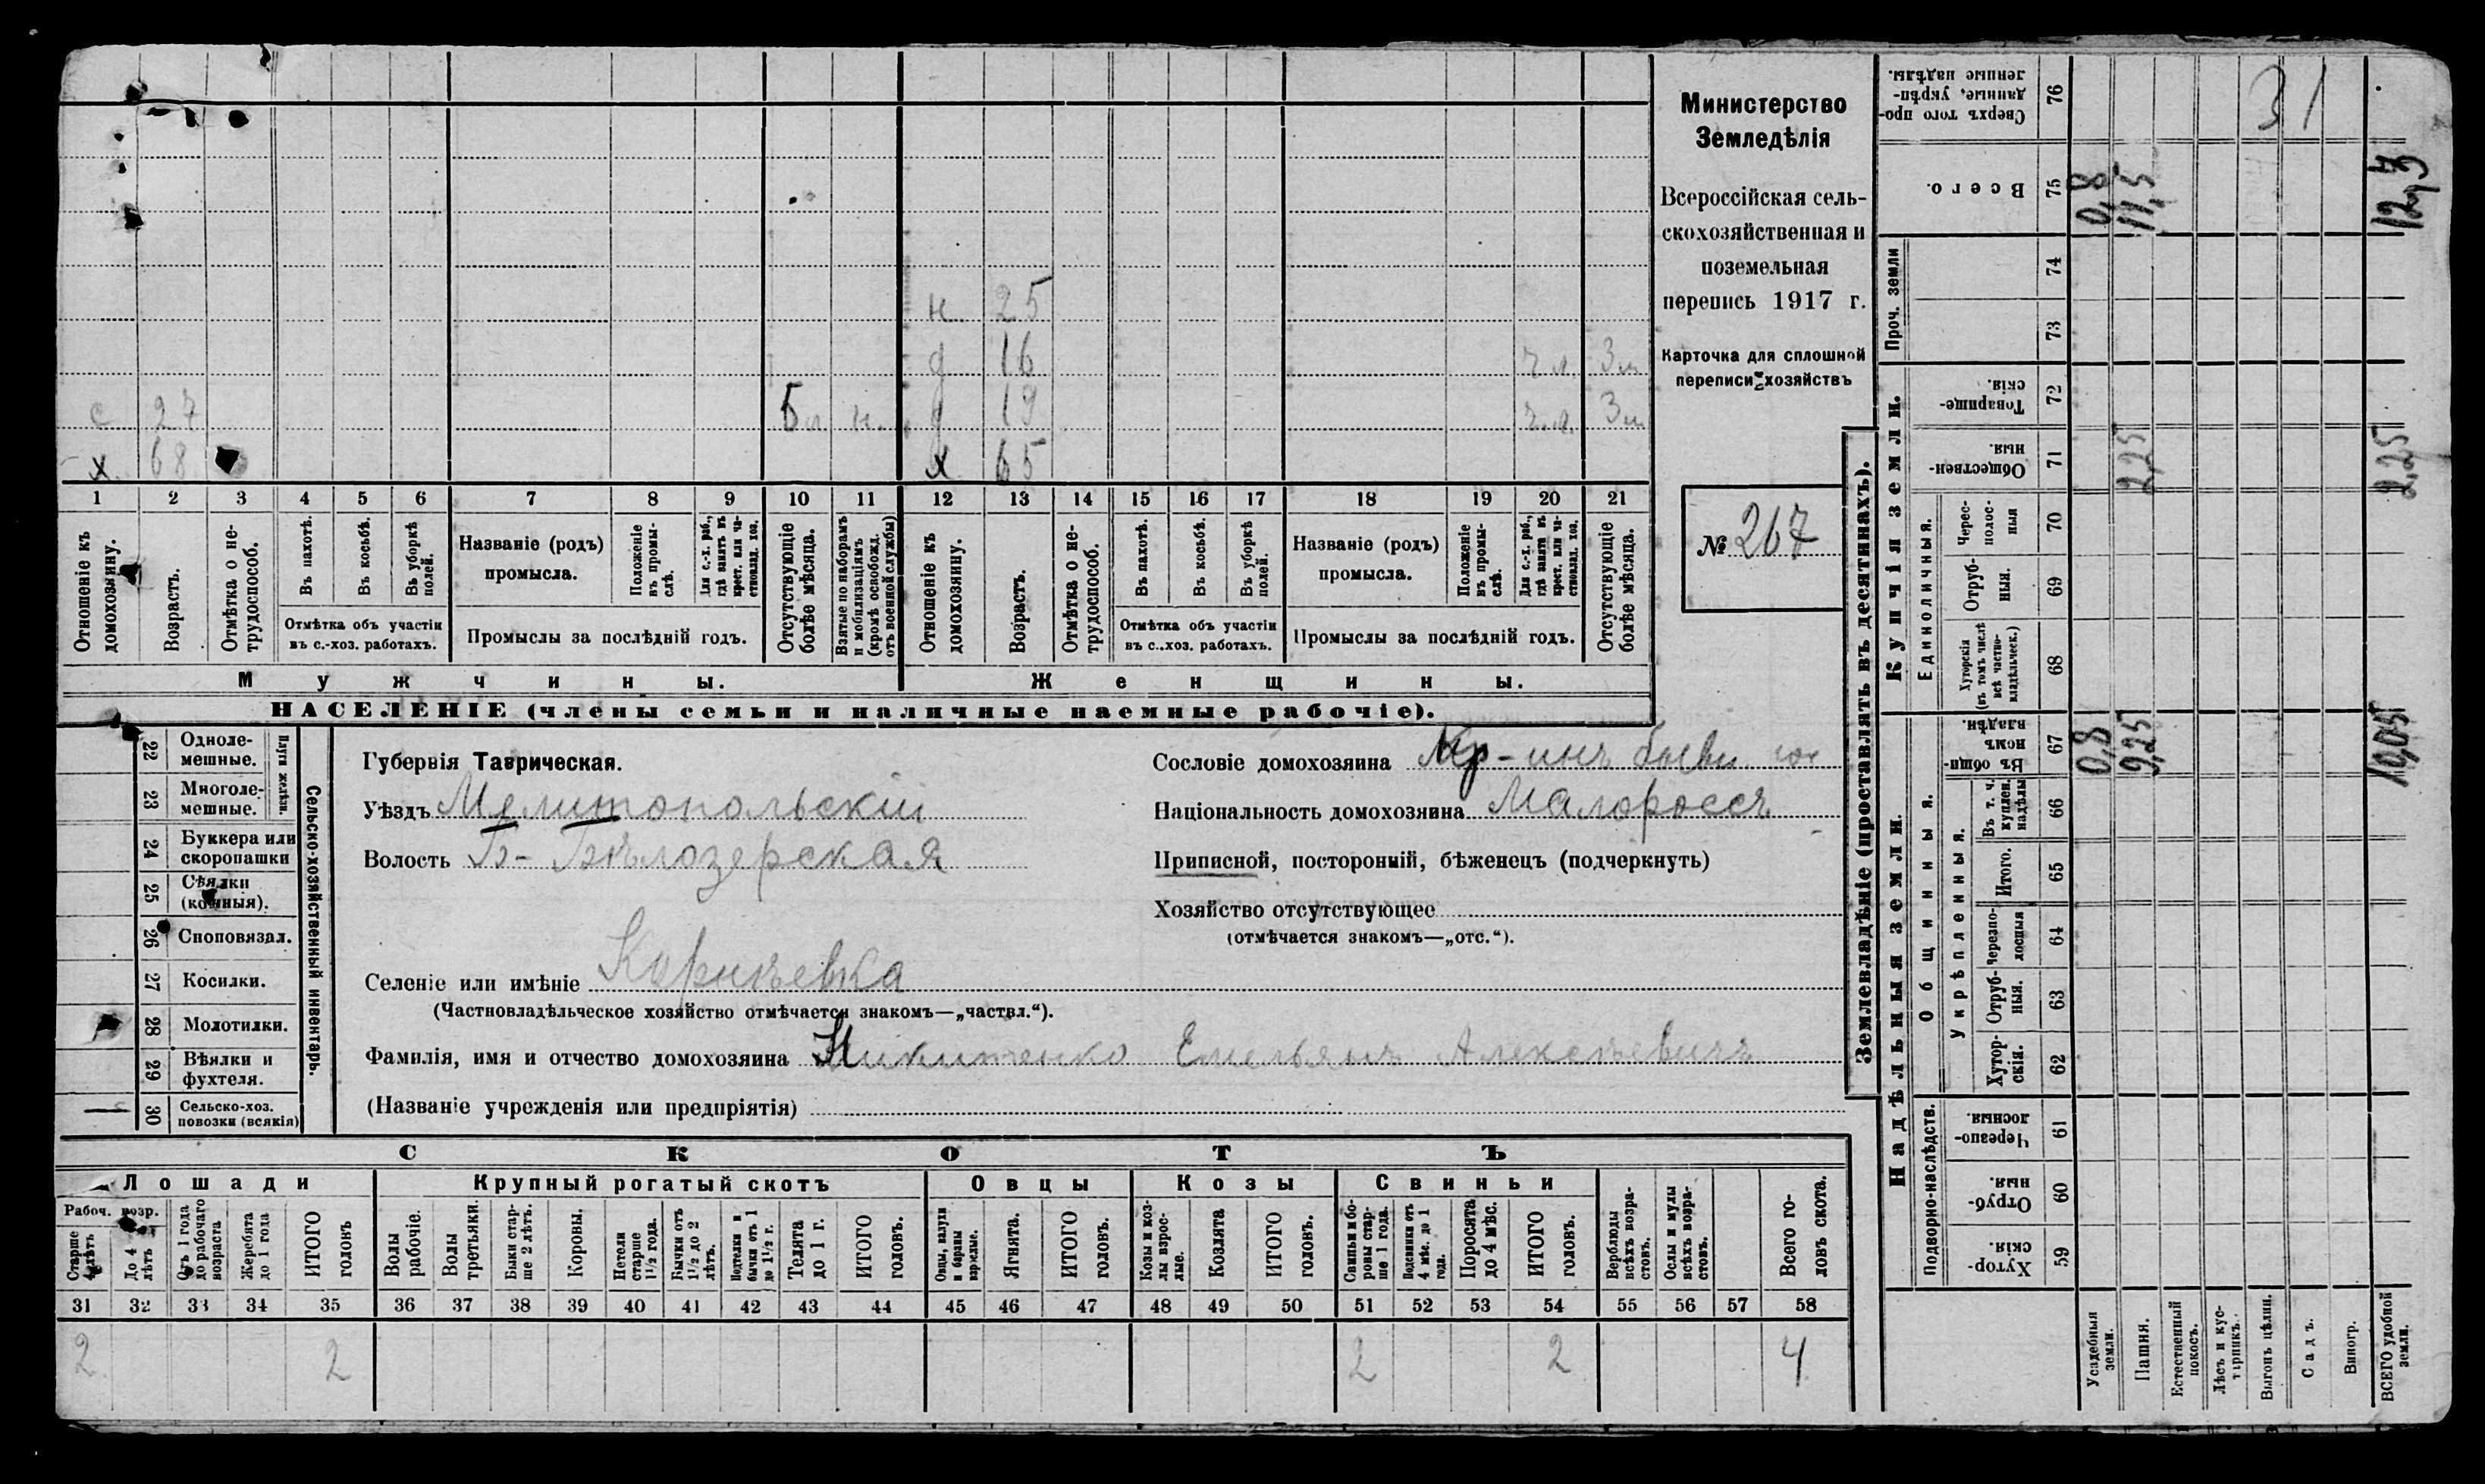 н. 25
д 16 ч.л. 3м
с 27 5л н. д 19 ч.л. 3м
х 68 х 65
1 2 3 4 5 6 7 8 9 10 11 12 13 14 15 16 17 18 19 20 21
Отношеніе къ домохозяину.
Возрастъ.
Отмѣтка о не-
трудоспособ.
Въ пахотѣ.
Въ косьбѣ.
Въ уборкѣ
полей.
Отмѣтка объ участіи
въ с.-хоз. работахъ.
Названіе (родъ)
промысла.
Положеніе
въ промы-
слѣ.
Для с.-х. раб.,
гдѣ занятъ въ
крест. или ча-
стновлад. хоз.
Промыслы за послѣдній годъ.
Отсутствующіе
болѣе мѣсяца.
Взятые по наборамъ
и мобилизаціямъ
(кромѣ освобожд.
отъ военной службы)
Отношеніе къ
домохозяину.
Возрастъ.
Отмѣтка о не-
трудоспособ.
Въ пахотѣ.
Въ косьбѣ.
Въ уборкѣ
полей.
Отмѣтка объ участіи
въ с.-хоз. работахъ.
Названіе (родъ)
промысла.
Положеніе
въ промы-
слѣ.
Для с.-х. раб.,
гдѣ занята въ
крест. или ча-
стновлад. хоз.
Промыслы за послѣдній годъ.
Отсутствующіе
болѣе мѣсяца.
Мужчины.
Женщины.
НАСЕЛЕНІЕ (члены семьи и наличные наемные рабочіе).
Министерство
Земледѣлія
Всероссійская сель-
скохозяйственная и
поземельная
перепись 1917 г.
Карточка для сплошной
переписи хозяйствъ
№ 267
22 Одноле-
мешные.
23 Многоле-
мешные.
Плуги желѣзн.
24 Буккера или
скоропашки
25 Сѣялки
(конныя).
26 Сноповязал.
27 Косилки.
28 Молотилки.
29 Вѣялки и
фухтеля.
30 Сельско-хоз.
повозки (всякія)
Сельско-хозяйственный инвентарь.
Губернія Таврическая.
Уѣздъ Мелитопольскій
Волость Б-Бѣлозерская
Сословіе домохозяина Кр-инъ
Національность домохозяина Малороссъ
Приписной, посторонній, бѣженецъ (подчеркнуть)
Хозяйство отсутствующее
(отмѣчается знакомъ—„отс.“).
Селеніе или имѣніе Корнѣевка
(Частновладѣльческое хозяйство отмѣчается знакомъ—„частвл.“).
Фамилія, имя и отчество домохозяина Никитенко Емельянъ Алексѣевичъ
(Названіе учрежденія или предпріятія)
СКОТЪ
Лошади
Крупный рогатый скотъ
Овцы
Козы
Свиньи
Рабоч. возр.
Старше
4 лѣтъ
До 4
лѣтъ
Отъ 1 года
до рабочаго
возраста
Жеребята
до 1 года
ИТОГО
головъ
Волы
рабочіе.
Волы
третьяки.
Быки стар-
ше 2 лѣтъ.
Коровы.
Нетели
старше
1½ года.
Бычки отъ
1½ до 2
лѣтъ.
Подтелки и
бычки отъ 1
до 1½ г.
Телята
до 1 г.
ИТОГО
головъ.
Овцы, валухи
и бараны
взрослые.
Ягнята.
ИТОГО
головъ.
Козы и коз-
лы взрос-
лые.
Козлята
ИТОГО
головъ.
Свиньи и бо-
ровы стар-
ше 1 года.
Подсвинки отъ
4 мѣс. до 1
года.
Поросята
до 4 мѣс.
ИТОГО
головъ.
Верблюды
всѣхъ возра-
стовъ.
Ослы и мулы
всѣхъ возра-
стовъ.
Всего го-
ловъ скота.
31 32 33 34 35 36 37 38 39 40 41 42 43 44 45 46 47 48 49 50 51 52 53 54 55 56 57 58
2 2 2 2 4
Землевладѣніе (проставлять въ десятинахъ).
Надѣльныя земли.
Купчія земли.
Проч. земли
Подворно-наслѣдств.
Общинныя.
Укрѣпленныя.
Единоличныя.
Хутор-
скія. 59
Отруб-
ныя. 60
Черезпо-
лосныя. 61
Хутор-
скія. 62
Отруб-
ныя. 63
Черезпо-
лосныя 64
Итого. 65
Въ т. ч.
куплен.
надѣлы 66
Въ общи-
номъ
владѣн. 67
Хуторскія
(въ томъ числѣ
всѣ частно-
владѣльческ.) 68
Отруб-
ныя. 69
Черес-
полос-
ныя 70
Обществен-
ныя. 71
Товарище-
скія. 72
73
74
Всего. 75
Сверхъ того про-
данные, укрѣп-
ленные надѣлы. 76
Усадебныя
земли. 0,8 0,8
Пашня. 9,25 2,25 11,5
Естественный
покосъ.
Лѣсъ и кус-
тарникъ.
Выгонъ цѣлин.
Садъ.
Виногр.
ВСЕГО удобной
земли. 10,05 2,25 12,3
31